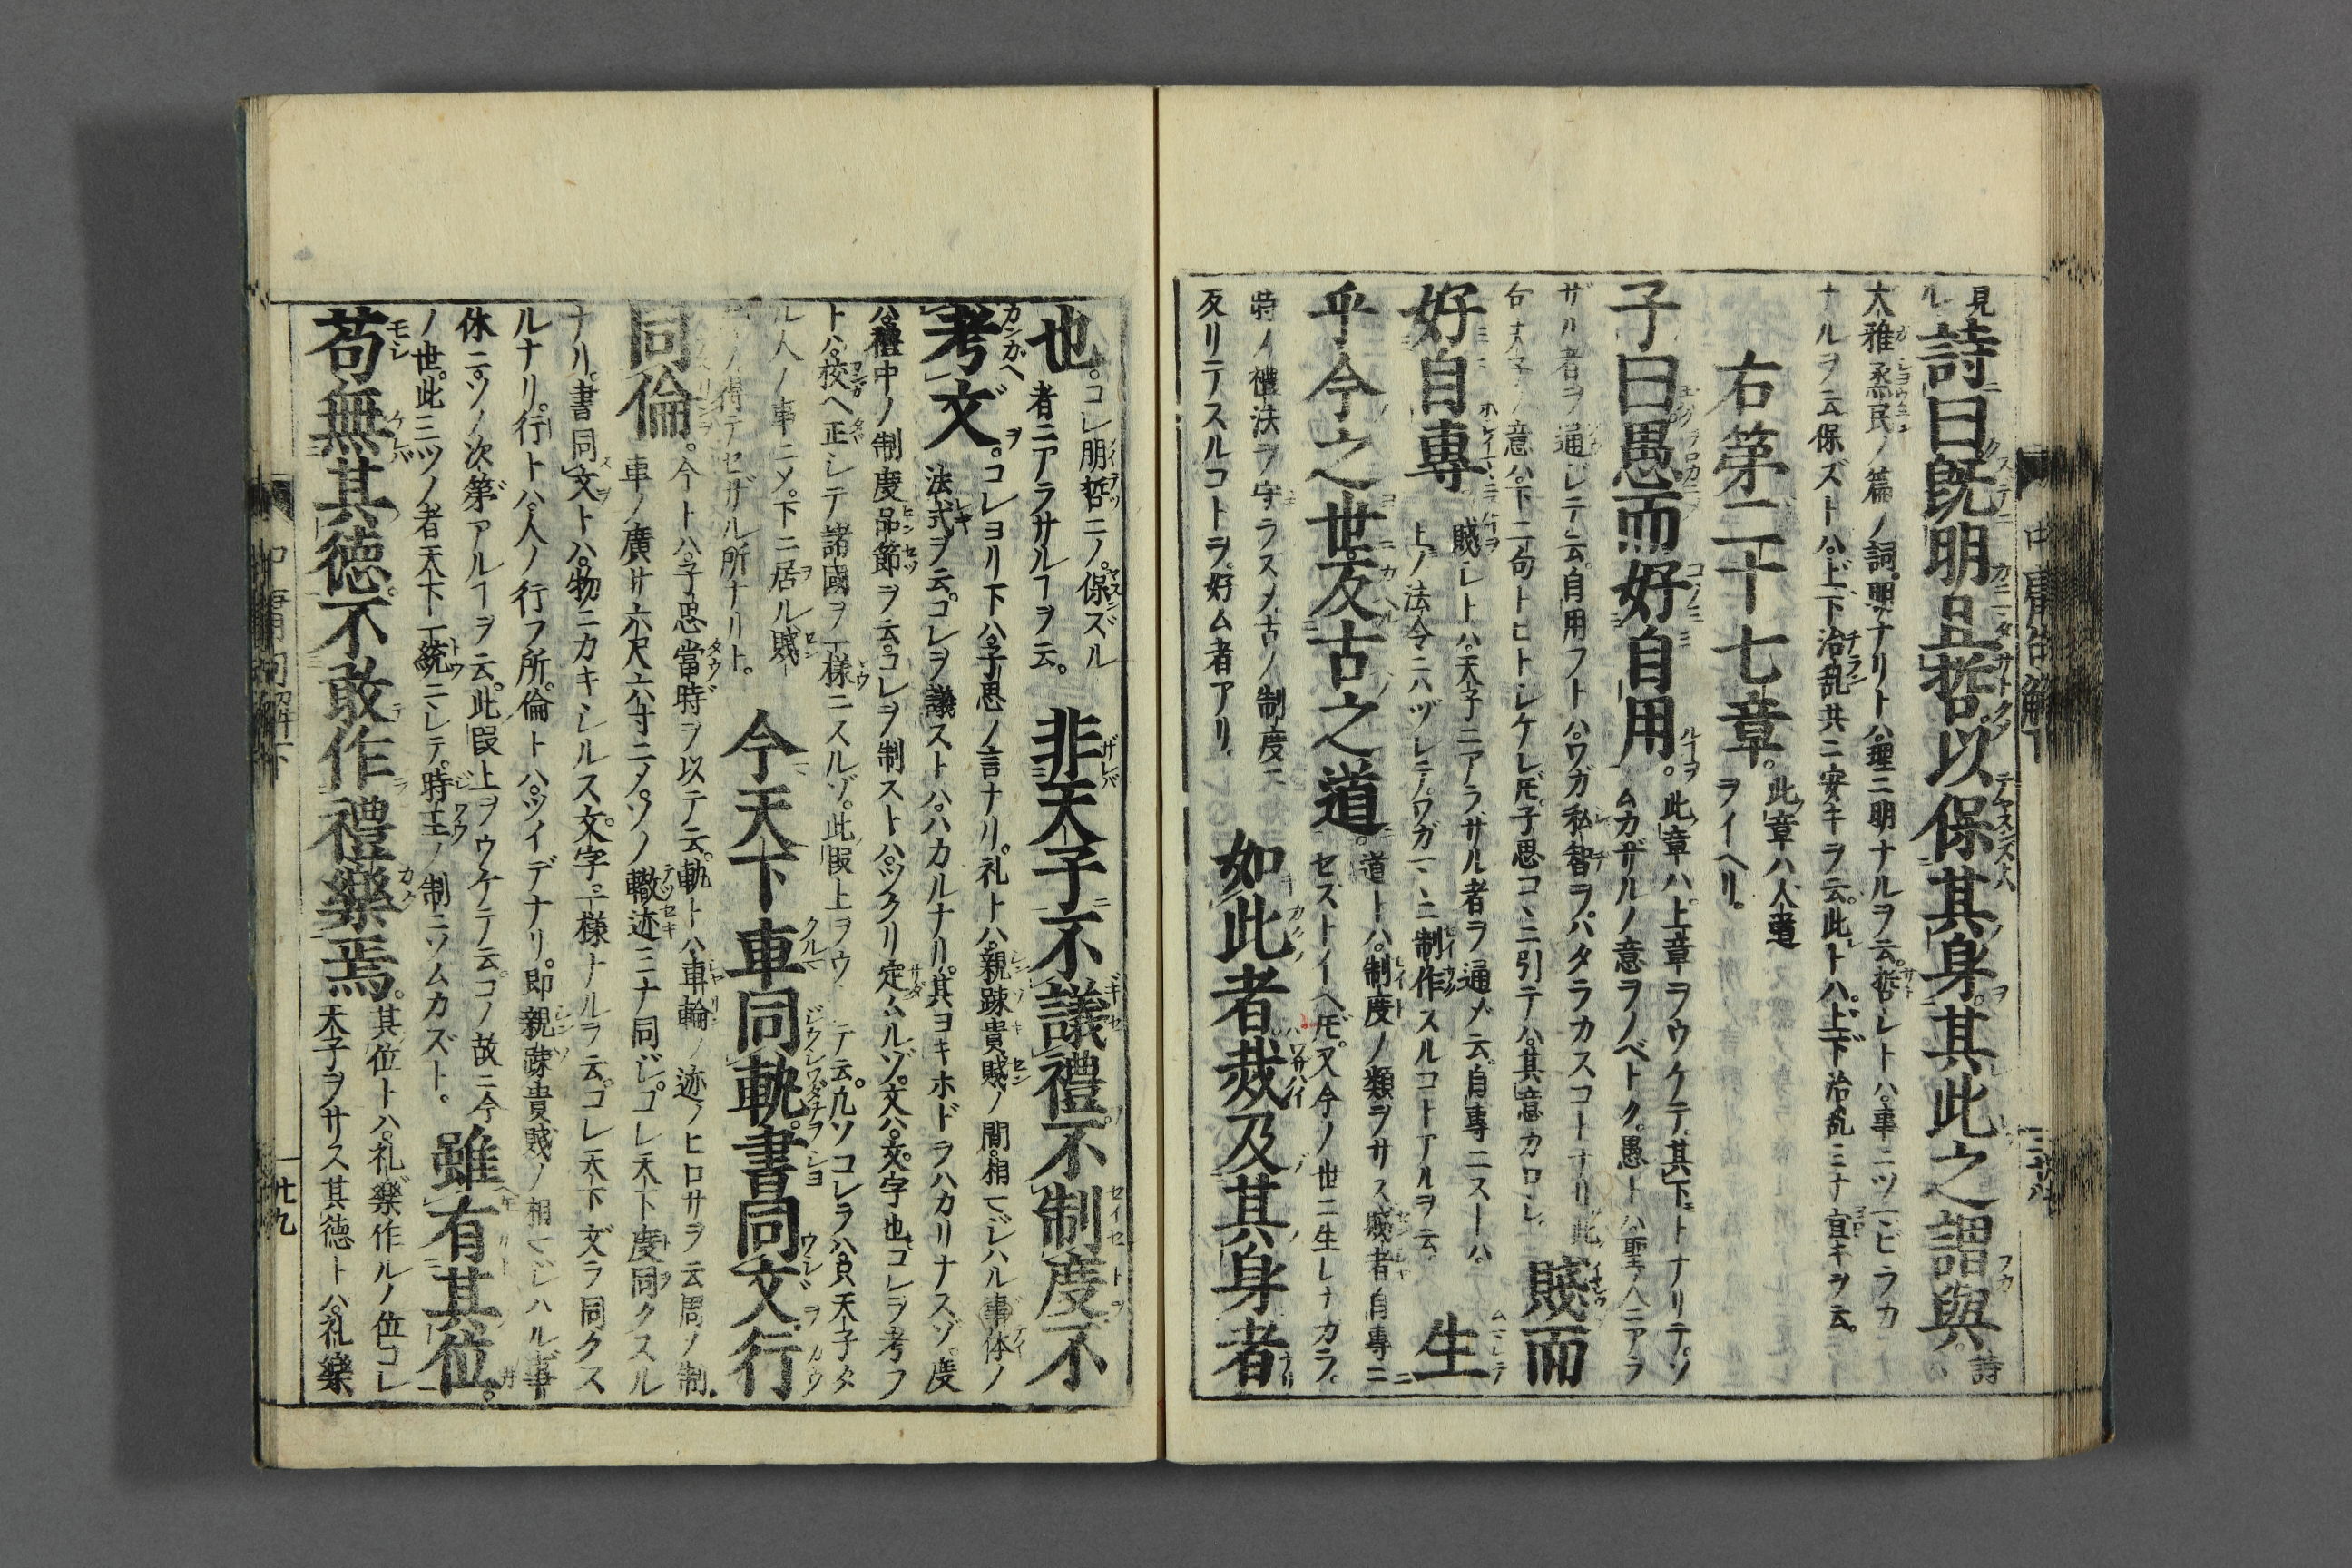 見ル
詩曰既明且哲以保其身其此之謂與。詩
大雅烝民ノ篇ノ詞。明ナリトハ。理ニ明ナルヲ云。哲シトハ。事ニツ
ナルヲ云。保ズトハ。上下治乱共ニ安キヲ云。此トハ。上下治乱ミナ宜キヲ云。
右第二十七章。此章ハ人道ヲイヘリ。
子曰愚而好自用。此章ハ。上章ヲウケテ。其下トナリテ。ソムカザルノ意ヲノベトク。愚トハ。聖人ニアラ
ザル者ヲ通ジテ云。自用フトハ。ワガ私智ヲハタラカスコトナリ。此
句ノ意ハ。下ニ句トヒトシケレ𪜈。子思コヽニ引テハ。其意カロシ。賤而
好自專。賤シトハ。天子ニアラサル者ヲ通メ云。自專ニストハ。上ノ法令ニハヅレテ。ワガマヽニ制作スルコトアルヲ云。生
乎今之世反古之道。道トハ。制度ノ類ヲサス。賤者自專ニセズトイヘ𪜈。又今ノ世ニ生レナカラ。
時ノ禮法ヲ守ラスメ。古ノ制度ニ反リテスルコトヲ。好ム者アリ。如此者烖及其身者
中庸句解下
也。コレ明哲ニノ。保ズル者ニアラサルヿヲ云。非天子不議禮不制度不
考文。コレヨリ下ハ。子思ノ言ナリ。礼トハ。親踈貴賤ノ間。相マジハル事体ノ法式ヲ云。コレヲ議ストハ。ハカルナリ。其ヨキホドヲハカリナスゾ。度
ハ。禮中ノ制度品節ヲ云。コレヲ制ストハ。ツクリ定ムルゾ。文ハ。文字也。コレヲ考フ
トハ。校ヘ正シテ諸國ヲ一様ニスルゾ。此段上ヲウケテ云。凡ソコレラハ。只天子タ
ル人ノ事ニメ。下ニ居ル賤者ノ得テセザル所ナリト。今天下車同軌書同文行
同倫。今トハ。子思當時ヲ以テ云。軌トハ。車輪ノ迹ノヒロサヲ云。周ノ制。車ノ廣サ六尺六寸ニメ。ソノ轍迹ミナ同ジ。コレ天下度ヲ同クスル
ナリ。書同文トハ。物ニカキシルス文字。一様ナルヲ云。コレ天下文ヲ同クス
ルナリ。行トハ。人ノ行フ所。倫トハ。ツイデナリ。即親疎貴賤ノ相マジハル事
体ニ。ソノ次第アルヿヲ云。此段上ヲウケテ云。コノ故ニ今ノ世。此三ツノ者天下一統ニシテ。時王ノ制ニソムカズト。雖有其位。
苟無其德不敢作禮樂焉。其位トハ。礼樂作ルノ位。コレ天子ヲサス。其德トハ。礼樂
中庸句解下
廿九